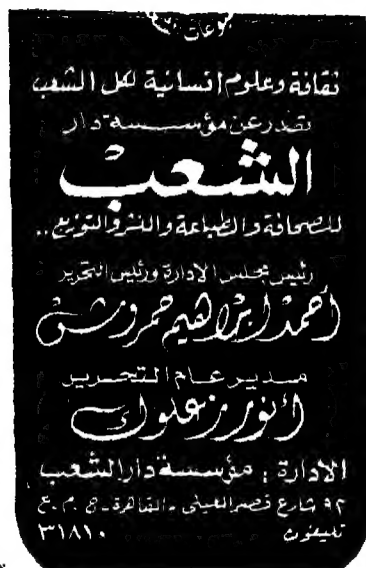 ثقافة وعلوم انسانية لكل الشعب
تصدر عن مؤسسة دار
الشعب
للصحافة والطباعة والنشر والتوزيع ..
رئيس مجلس الادارة ورئيس التحرير
أحمد ابراهيم حمروش
مدير عام التحرير
أنور زعلوك
الادارة : مؤسسة دار الشعب
٩٢ شارع قصر العيني - القاهرة - ج . م . ع
تليفون ٣١٨١٠